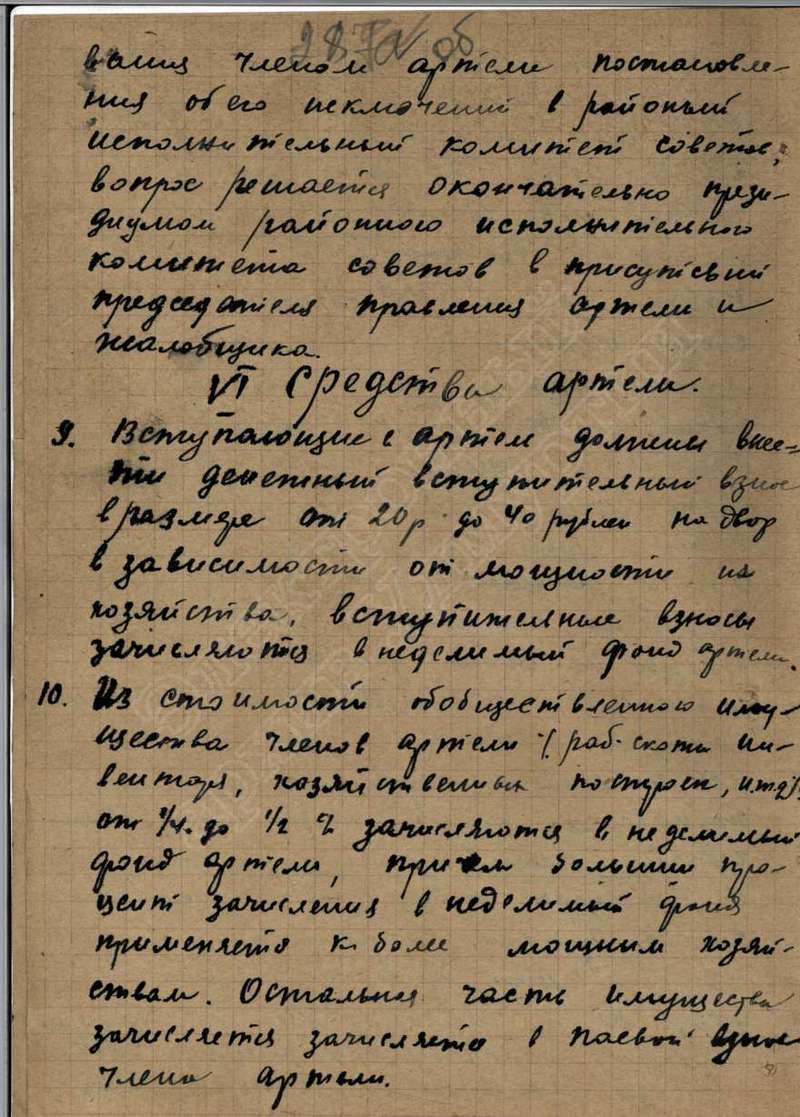 287а об
вания членом артели постановле-
ния об его исключении в районый
исполнительный комитет советов,
вопрос решается окончательно прези-
диумом районного исполнительного
комитета советов в присутствии
председателя правления артели и
жалобщика.
VI Средства артели.
9. Вступающие в артел должны внес-
ти денежный вступительный взнос
в размере от 20 р до 40 рублей на двор
в зависимости от мощности их
хозяйства, вступительные взносы
зачисляются в неделимый фонд артели.
10. Из стоимости обобществленного иму-
щества членов артели (раб. скота ин-
вентаря, хозяйственых построек, и.т.д).
от 1/4 до 1/2 % зачисляются в неделимый
фонд артели, причем больший про-
цент зачисления в неделимый фонд
применяется к более мощным хозяй-
ствам. Остальная часть имущества
зачисляется зачисляется в паевой взнос
члена артели.